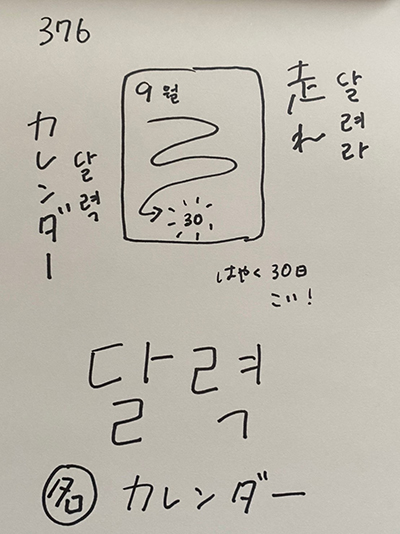 376
9월
30
走れ
달려라
カレンダー
달력
はやく30日
こい!
달력
名 カレンダー